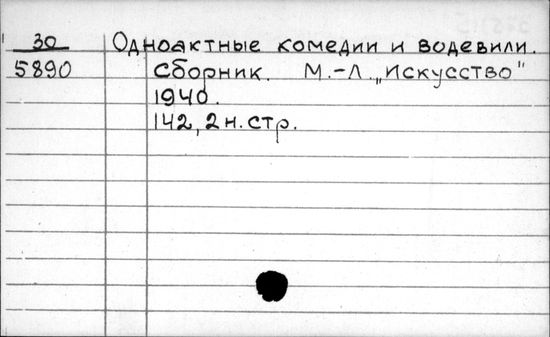 30 Одноактные комедии и водевили.
5890 Сборник. М.-Л. „Искусство"
1940.
142, 2 н. стр.